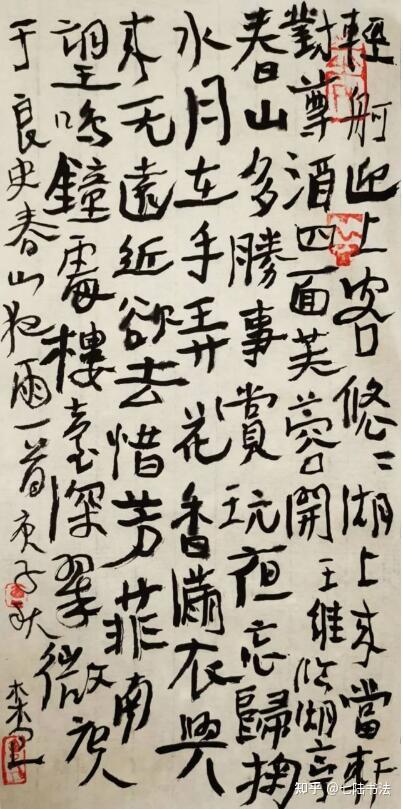 輕舸迎上客悠〻湖上来當軒
對尊酒四面芙蓉開 王維臨湖亭
春山多勝事賞玩夜忘歸掬
水月在手弄花香滿衣興
来无遠近欲去惜芳菲南
望鳴鐘處樓臺深翠微唐人
于良史春山夜雨一首庚子秋
知乎 @七陆书法